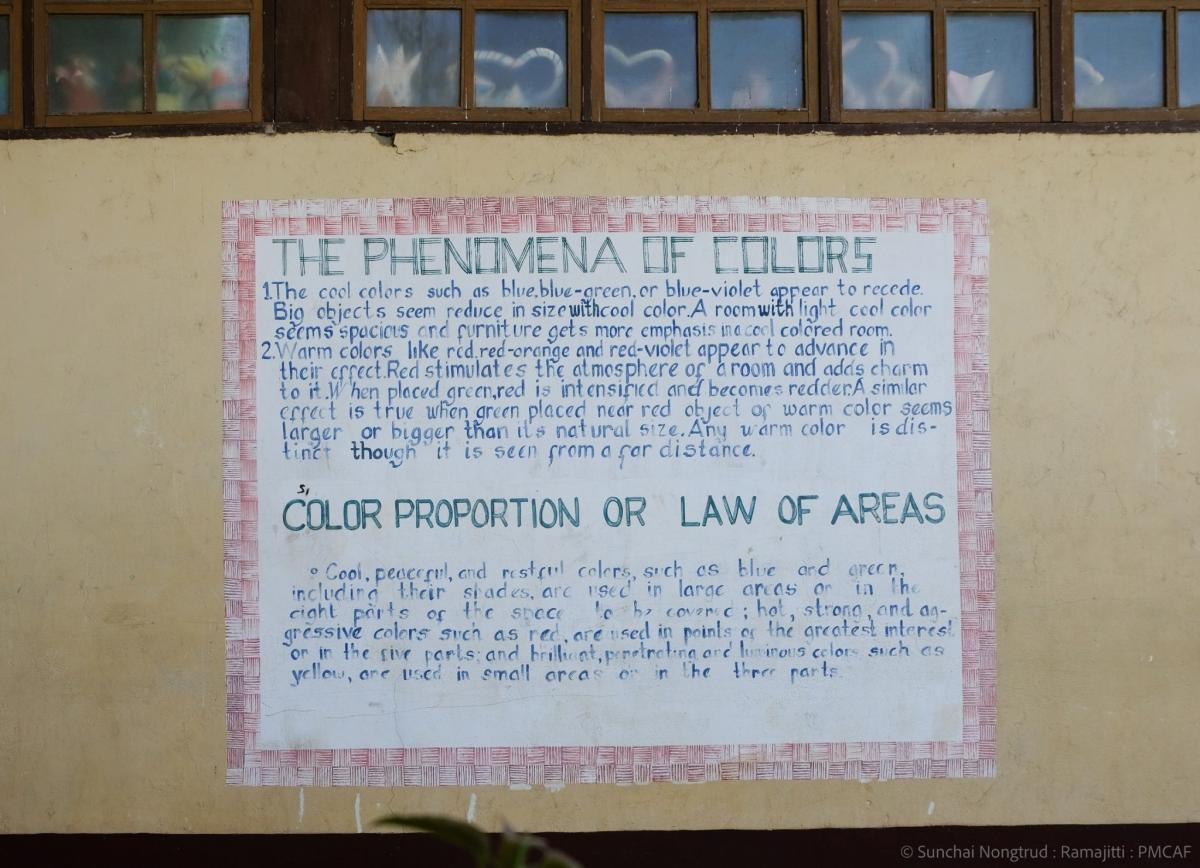 THE PHENOMENA OF COLORS
1.The cool colors such as blue,blue-green,or blue-violet appear to recede.
Big objects seem reduce in size with cool color.A room with light cool color
seems spacious and furniture gets more emphasis in a cool colored room.
2.Warm colors like red,red-orange and red-violet appear to advance in
their effect.Red stimulates the atmosphere of a room and adds charm
to it.When placed green,red is intensified and becomes redder.A similar
effect is true when green placed near red object of warm color seems
larger or bigger than its natural size.Any warm color is dis-
tinct though it is seen from a far distance.
COLOR PROPORTION OR LAW OF AREAS
Cool, peaceful, and restful colors, such as blue and green,
including their shades, are used in large areas or in the
eight parts of the space to be covered; hot, strong, and ag-
gressive colors such as red, are used in points of the greatest interest
or in the five parts; and brilliant, penetrating and luminous colors such as
yellow, are used in small areas or in the three parts.
© Sunchai Nongtrud : Ramajitti : PMCAF